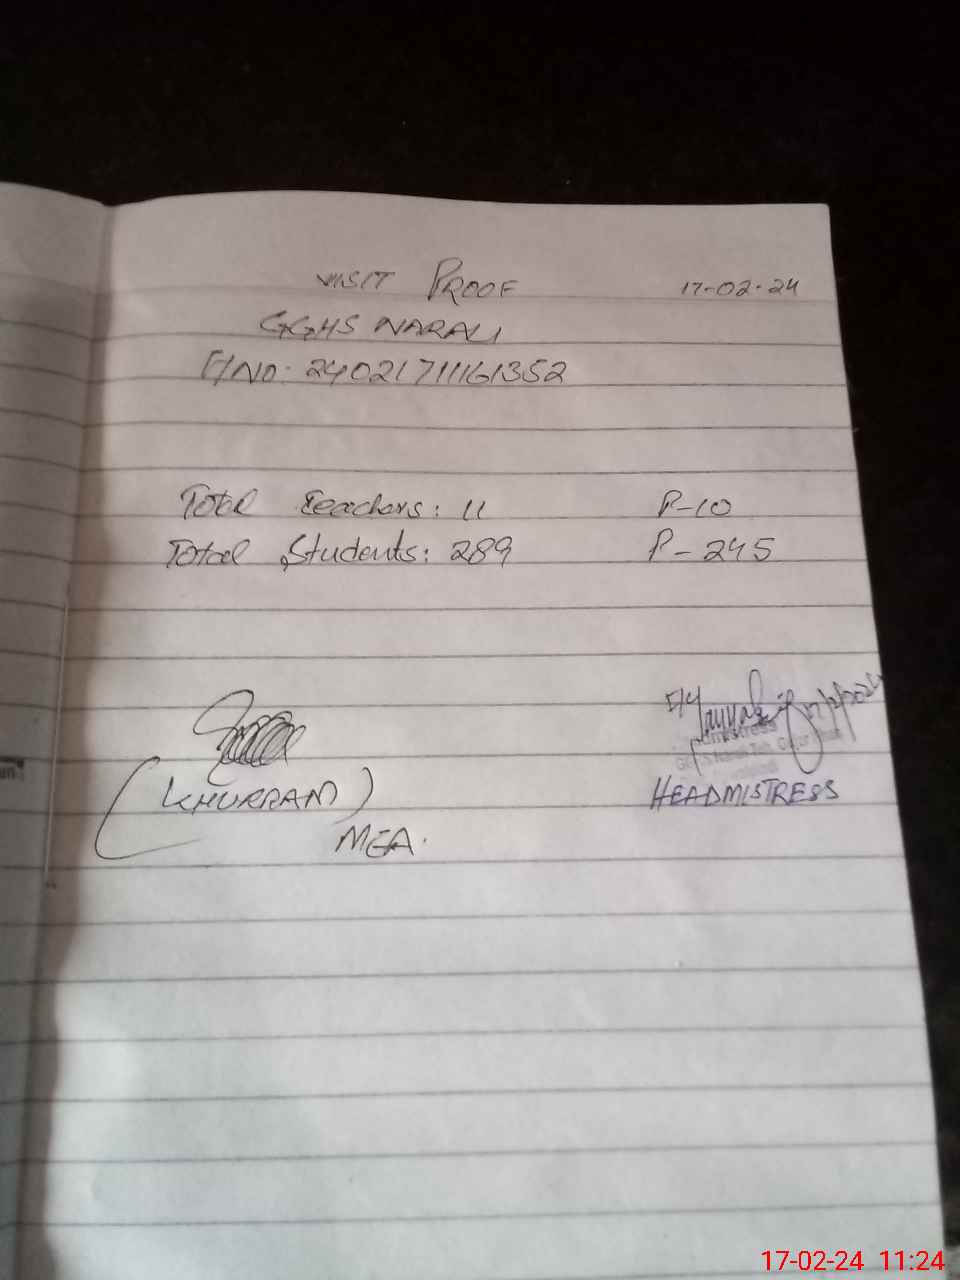 VISIT PROOF 17-02-24
GGHS NARALI
F/NO: 24021711161352
Total teachers: 11 P-10
Total Students: 289 P-245
(KHURRAM)
MEA.
HEADMISTRESS
17-02-24 11:24